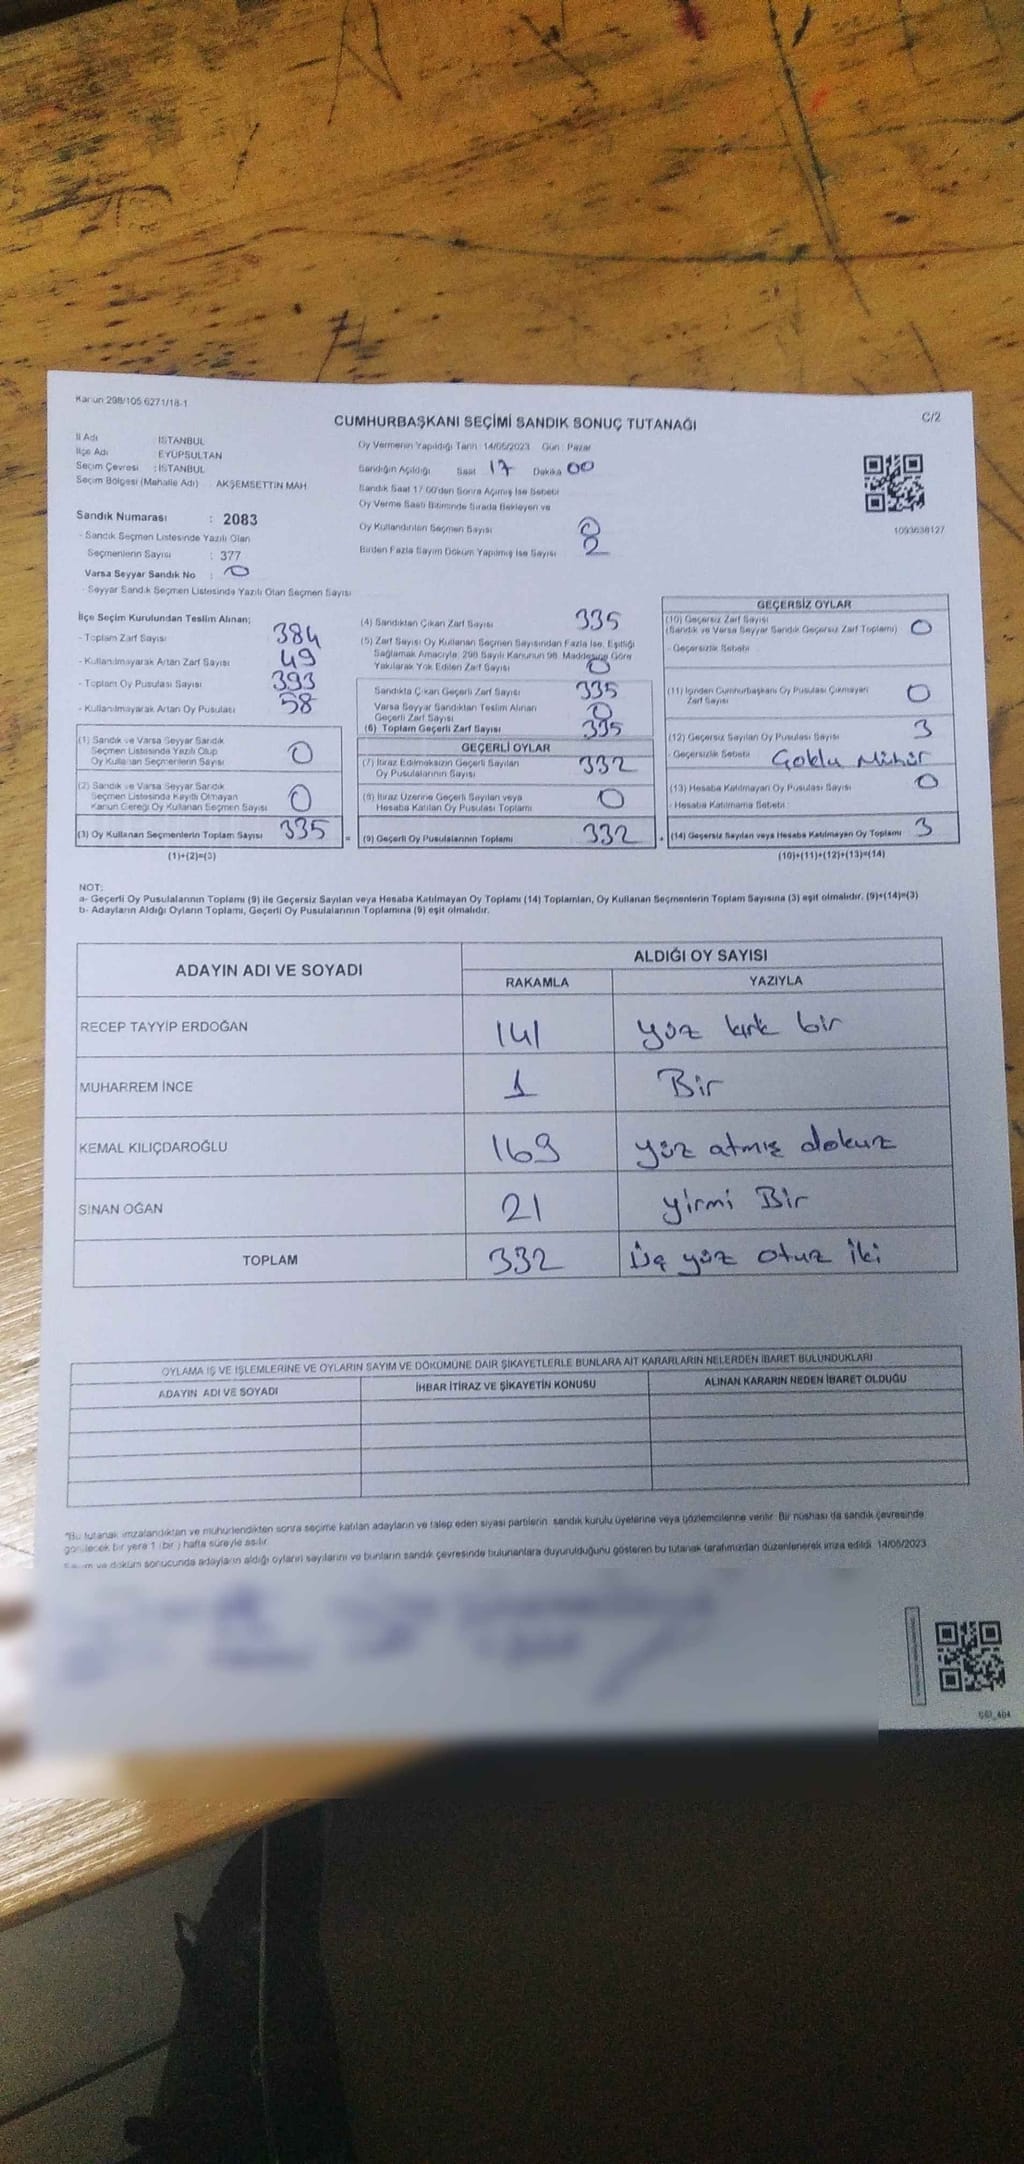 Kanun 298/105 6271/18-1
C/2
CUMHURBAŞKANI SEÇİMİ SANDIK SONUÇ TUTANAĞI
İl Adı : İSTANBUL
İlçe Adı : EYÜPSULTAN
Seçim Çevresi : İSTANBUL
Seçim Bölgesi (Mahalle Adı) : AKŞEMSETTİN MAH.
Sandık Numarası : 2083
- Sandık Seçmen Listesinde Yazılı Olan
Seçmenlerin Sayısı : 377
Varsa Seyyar Sandık No : 0
- Seyyar Sandık Seçmen Listesinde Yazılı Olan Seçmen Sayısı
Oy Vermenin Yapıldığı Tarih : 14/05/2023 Gün : Pazar
Sandığın Açıldığı Saat 17 Dakika 00
Sandık Saat 17.00'den Sonra Açılmış İse Sebebi
Oy Verme Saati Bitiminde Sırada Bekleyen ve
Oy Kullandırılan Seçmen Sayısı 0
Birden Fazla Sayım Döküm Yapılmış İse Sayısı 2
1093638127
İlçe Seçim Kurulundan Teslim Alınan;
- Toplam Zarf Sayısı 384
- Kullanılmayarak Artan Zarf Sayısı 49
- Toplam Oy Pusulası Sayısı 393
- Kullanılmayarak Artan Oy Pusulası 58
(1) Sandık ve Varsa Seyyar Sandık
Seçmen Listesinde Yazılı Olup
Oy Kullanan Seçmenlerin Sayısı 0
(2) Sandık ve Varsa Seyyar Sandık
Seçmen Listesinde Kayıtlı Olmayan
Kanun Gereği Oy Kullanan Seçmen Sayısı 0
(3) Oy Kullanan Seçmenlerin Toplam Sayısı 335 =
(1)+(2)=(3)
(4) Sandıktan Çıkan Zarf Sayısı 335
(5) Zarf Sayısı Oy Kullanan Seçmen Sayısından Fazla İse, Eşitliği
Sağlamak Amacıyla, 298 Sayılı Kanunun 98. Maddesine Göre
Yakılarak Yok Edilen Zarf Sayısı 0
Sandıkta Çıkan Geçerli Zarf Sayısı 335
Varsa Seyyar Sandıktan Teslim Alınan
Geçerli Zarf Sayısı 0
(6) Toplam Geçerli Zarf Sayısı 335
GEÇERLİ OYLAR
(7) İtiraz Edilmeksizin Geçerli Sayılan
Oy Pusulalarının Sayısı 332
(8) İtiraz Üzerine Geçerli Sayılan veya
Hesaba Katılan Oy Pusulası Toplamı 0
(9) Geçerli Oy Pusulalarının Toplamı 332 +
GEÇERSİZ OYLAR
(10) Geçersiz Zarf Sayısı
(Sandık ve Varsa Seyyar Sandık Geçersiz Zarf Toplamı) 0
- Geçersizlik Sebebi
(11) İçinden Cumhurbaşkanı Oy Pusulası Çıkmayan
Zarf Sayısı 0
(12) Geçersiz Sayılan Oy Pusulası Sayısı 3
- Geçersizlik Sebebi Çoklu Mühür
(13) Hesaba Katılmayan Oy Pusulası Sayısı 0
- Hesaba Katılmama Sebebi :
(14) Geçersiz Sayılan veya Hesaba Katılmayan Oy Toplamı 3
(10)+(11)+(12)+(13)=(14)
NOT:
a- Geçerli Oy Pusulalarının Toplamı (9) ile Geçersiz Sayılan veya Hesaba Katılmayan Oy Toplamı (14) Toplamları, Oy Kullanan Seçmenlerin Toplam Sayısına (3) eşit olmalıdır. (9)+(14)=(3)
b- Adayların Aldığı Oyların Toplamı, Geçerli Oy Pusulalarının Toplamına (9) eşit olmalıdır.
ADAYIN ADI VE SOYADI
ALDIĞI OY SAYISI
RAKAMLA YAZIYLA
RECEP TAYYİP ERDOĞAN 141 yüz kırk bir
MUHARREM İNCE 1 Bir
KEMAL KILIÇDAROĞLU 169 yüz atmış dokuz
SİNAN OĞAN 21 yirmi Bir
TOPLAM 332 Üç yüz otuz iki
OYLAMA İŞ VE İŞLEMLERİNE VE OYLARIN SAYIM VE DÖKÜMÜNE DAİR ŞİKAYETLERLE BUNLARA AİT KARARLARIN NELERDEN İBARET BULUNDUKLARI
ADAYIN ADI VE SOYADI İHBAR İTİRAZ VE ŞİKAYETİN KONUSU ALINAN KARARIN NEDEN İBARET OLDUĞU
"Bu tutanak imzalandıktan ve mühürlendikten sonra seçime katılan adayların ve talep eden siyasi partilerin, sandık kurulu üyelerine veya gözlemcilerine verilir. Bir nüshası da sandık çevresinde
görülecek bir yere 1 (bir ) hafta süreyle asılır.
Sayım ve döküm sonucunda adayların aldığı oyların sayılarını ve bunların sandık çevresinde bulunanlara duyurulduğunu gösteren bu tutanak tarafımızdan düzenlenerek imza edildi. 14/05/2023